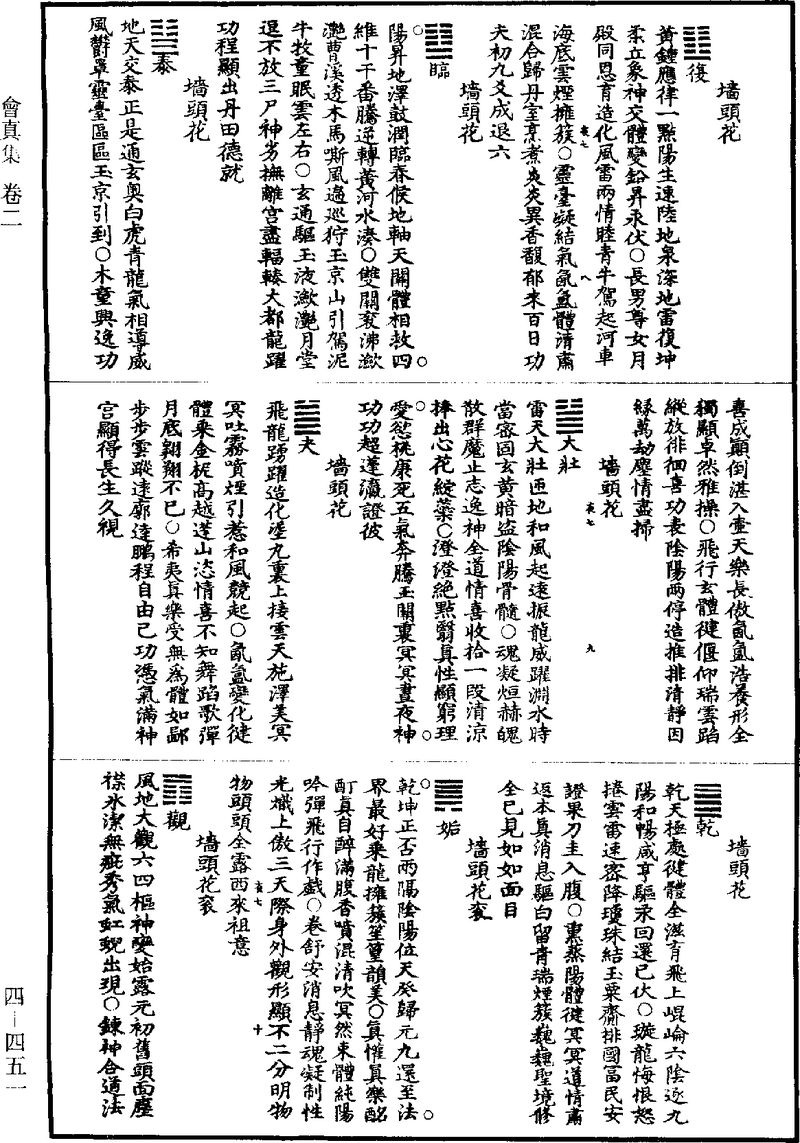 會真集 卷二
四－四五一
䷗復
墻頭花
黃鍾應律一點陽生速陸地泉深地雷復坤
柔立象神交體變鉛昇汞伏○長男尊女月
殿同恩育造化風雷兩情睦青牛駕起河車
海底雲煙擁簇○靈臺凝結氣氤氳體清肅
混合歸丹室烹煮炎炎異香馥郁來百日功
夫初九爻成退六
䷒臨
墻頭花
陽昇地澤鼓潤臨春候地軸天關體相救四
維十千番騰逆轉黃河水湊○雙關衮沸漱
灔曹溪透木馬嘶風過巡狩玉京山引駕泥
牛牧童眠雲左右○玄通驅玉液漱灔月堂
退不放三尸神劣撫離宮盡輻輳大都龍躍
功程顯出丹田德就
䷊泰
墻頭花
地天交泰正是通玄奧白虎青龍氣相導威
風欝罩靈臺區區玉京引到○木童興逸功
喜成顚倒湛入壷天樂長傲氤氳浩養形全
獨顯卓然雅操○飛行玄體徤偃仰瑞雲蹈
縱放徘徊喜功袁陰陽两停造推排清靜因
緣萬劫塵情盡掃
䷡大壯
墻頭花
雷天大壯匝地和風起遠振龍威躍淵水時
當密固玄黄暗盗陰陽骨髓○魂凝烜赫魄
散群魔止志逸神全道情喜收拾一段清涼
捧出心花綻蘂○澄澄絶點翳真性顯窮理
愛慾桃康死五氣奔騰玉關裏冥冥晝夜神
功功超蓬瀛證彼
䷪夬
墻頭花
飛龍踴躍造化塗九裏上接雲天施澤美冥
冥吐霧噴煙引惹和風競起○氤氳變化徤
體乘金柅高越蓬山恣情喜不知舞蹈歌彈
月底翱翔不已○希夷真樂受無爲體如鄙
步步雲蹤達廓達鵬程自由己功憑氣滿神
宫顯得長生久視
䷀乾
墻頭花
乾天極處徤體全滋育飛上崐崘六陰逐九
陽和暢咸亨驅汞回還已伏○璇龍悔恨怒
捲雲雷速密降瓊珠結玉粟齋排國富民安
證果刀圭入腹○熏蒸陽體徤冥冥道情肅
返本真消息驅白留青瑞煙簇巍巍聖境修
全已見如如面目
䷫姤
墻頭花衮
乾坤正否兩隔陰陽位天癸歸元九還至法
界最好乘龍擁簇笙篁韻美○真懽真樂酩
酊真自醉滿腹香噴混清吹冥然束體純陽
吟彈飛行作戲○卷舒安消息靜魂凝制性
光熾上傲三天際身外觀形顯不二分明物
物頭頭全露西來祖意
䷓觀
墻頭花衮
風地大觀六四樞神變始露元初舊頭面塵
襟氷潔無疵秀氣虹蜺出現○鍊神合道法